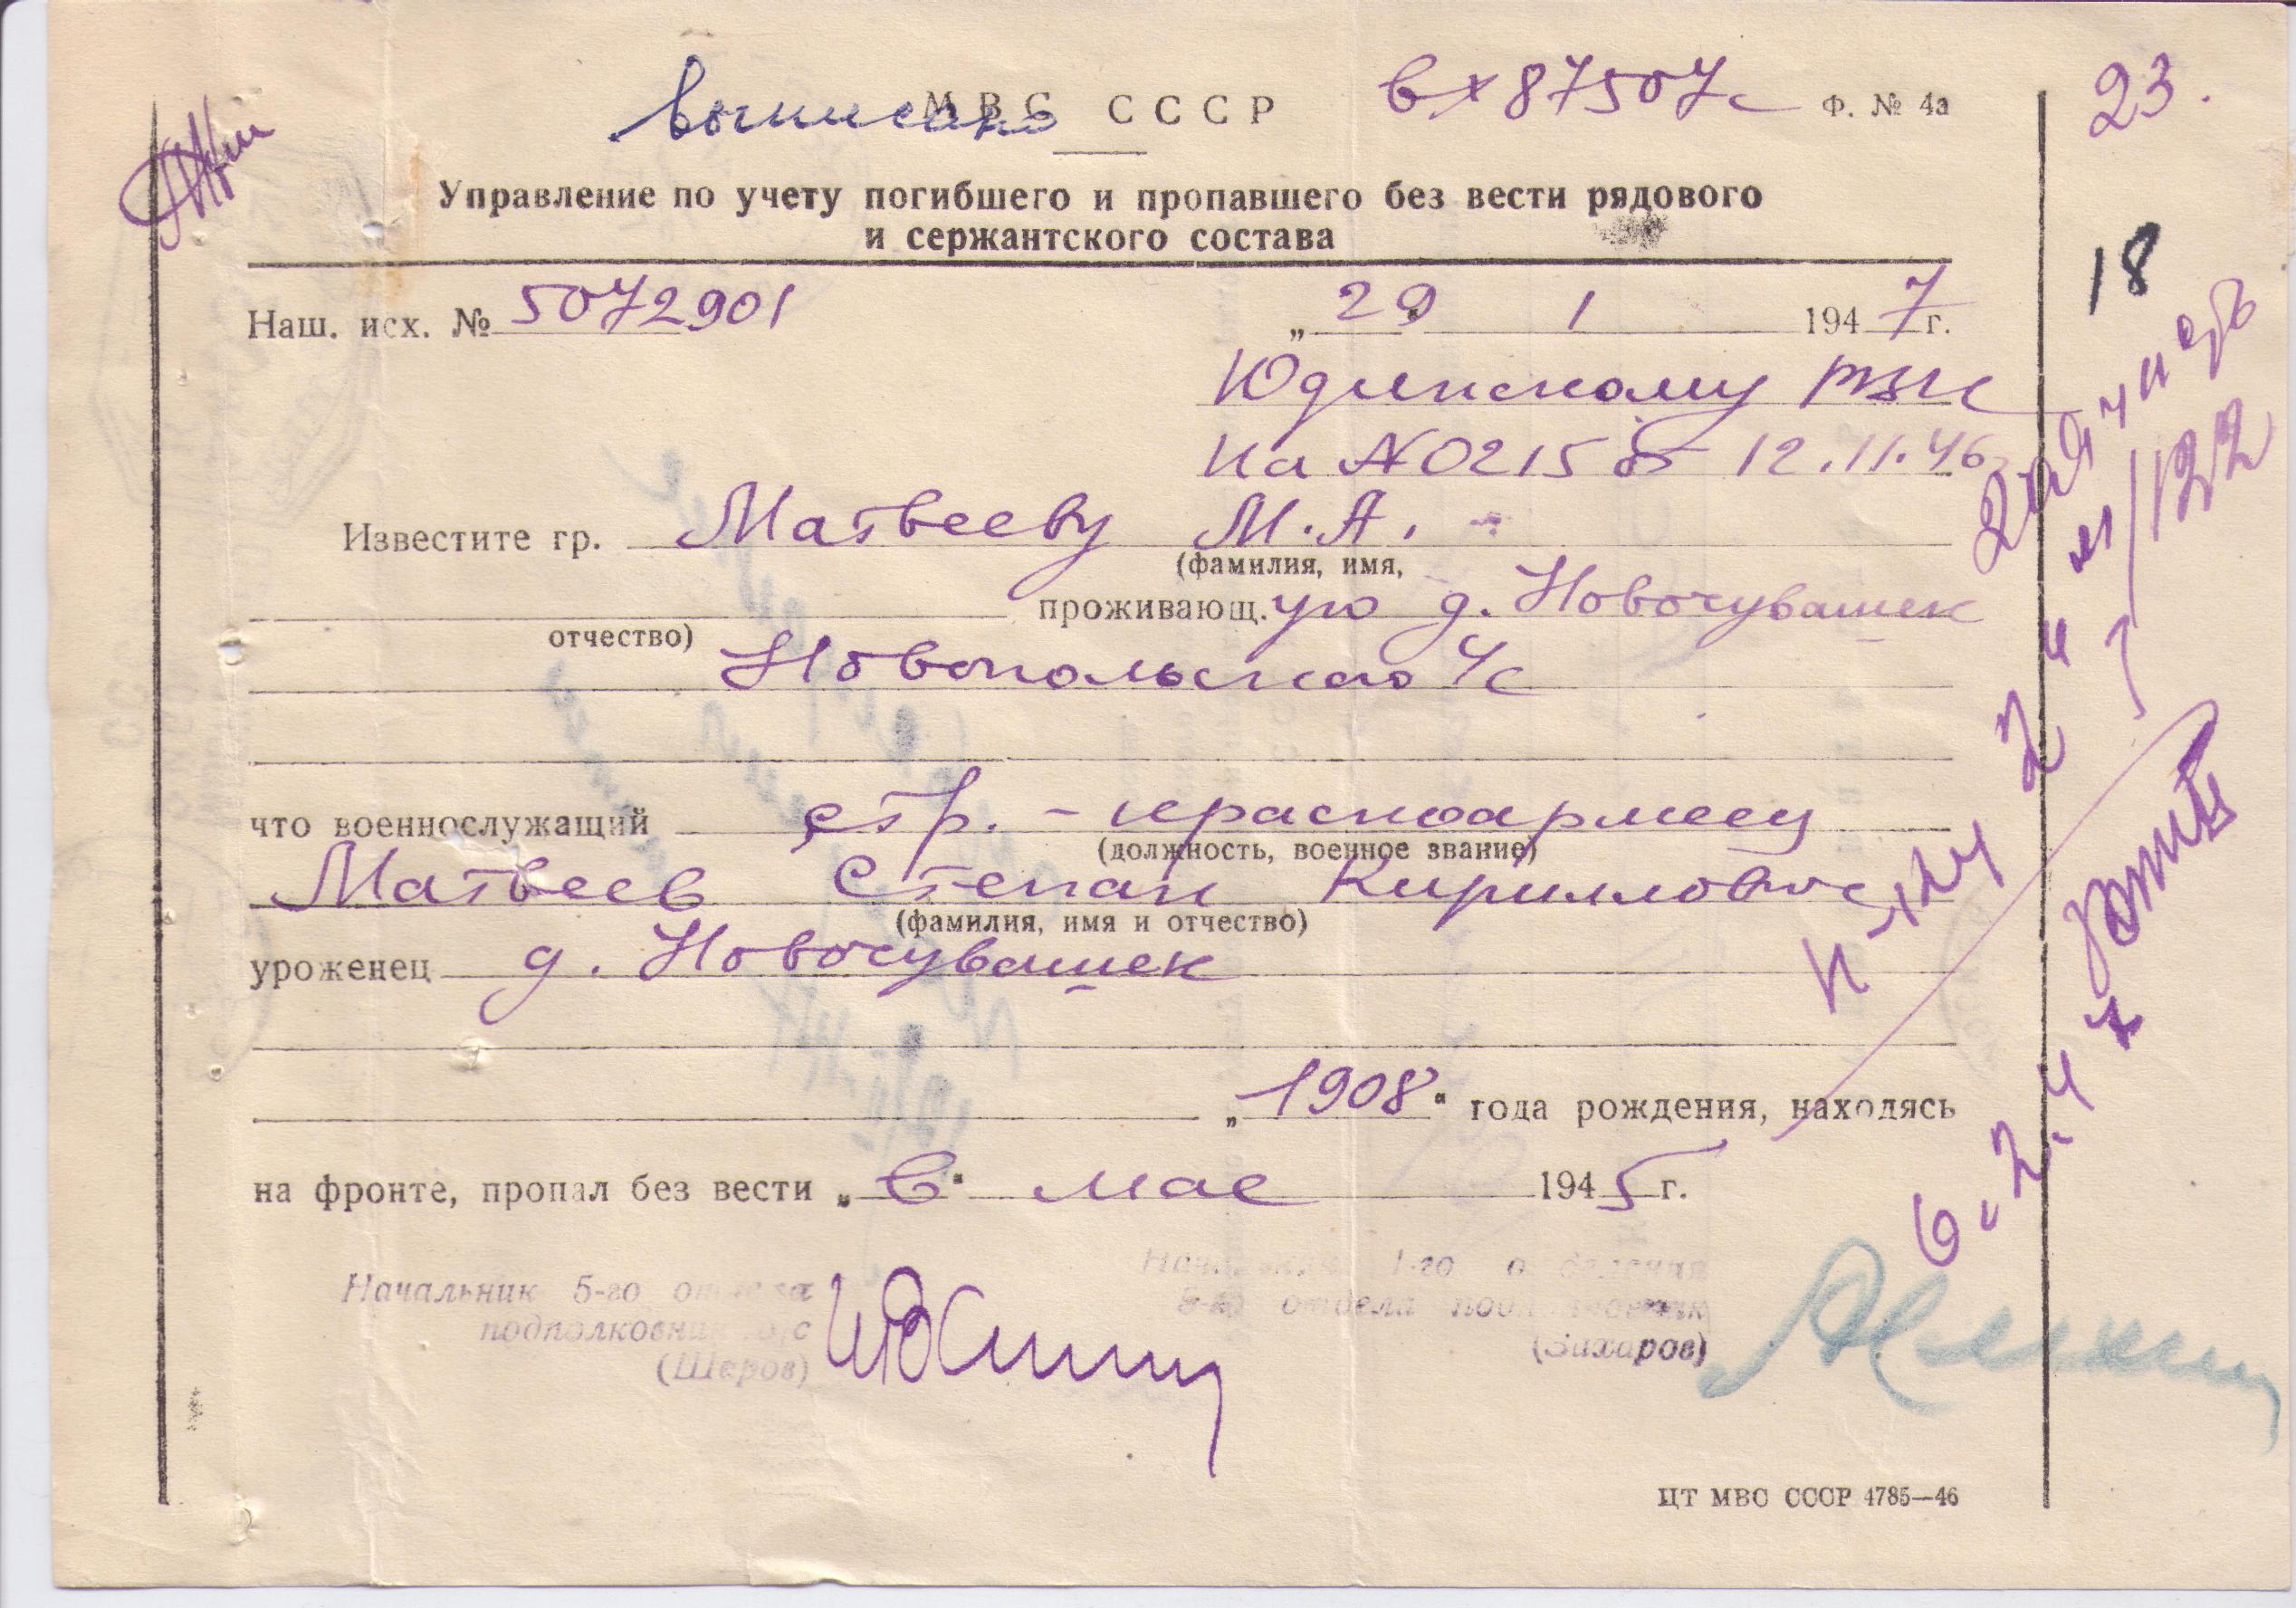 выписано МВС СССР вх 87507с Ф. № 4а
23.
Управление по учету погибшего и пропавшего без вести рядового
и сержантского состава
18
Наш. исх. № 5072901 „29" 1 1947 г.
Юдинскому РВК
на № 0215 от 12.11.46
Известите гр. Матвееву М.А.
(фамилия, имя,
проживающ.ую д. Новочувашек
отчество)
Новопольского с/с
что военнослужащий стр. - красноармеец
(должность, военное звание)
Матвеев Степан Кириллович
(фамилия, имя и отчество)
уроженец д. Новочувашек
„1908" года рождения, находясь
на фронте, пропал без вести „в" мае 1945 г.
Начальник 5-го отдела
подполковник
(Шаров)
Начальник 1-го отделения
5-го отдела подполковник
(Захаров)
6.2.47
ЦТ МВС СССР 4785—46